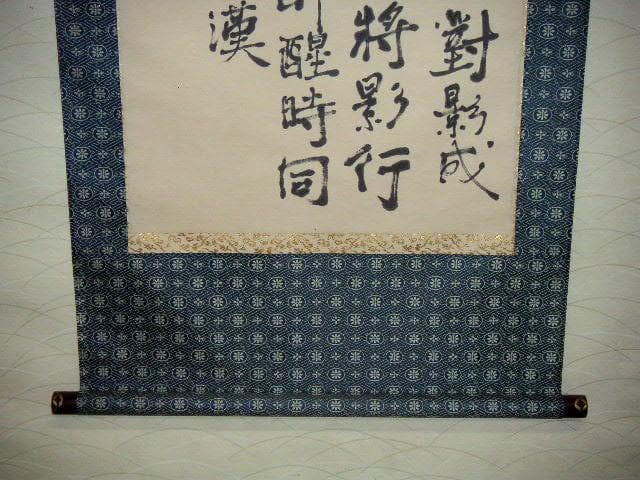 對影成
將影行
醒時同
漢